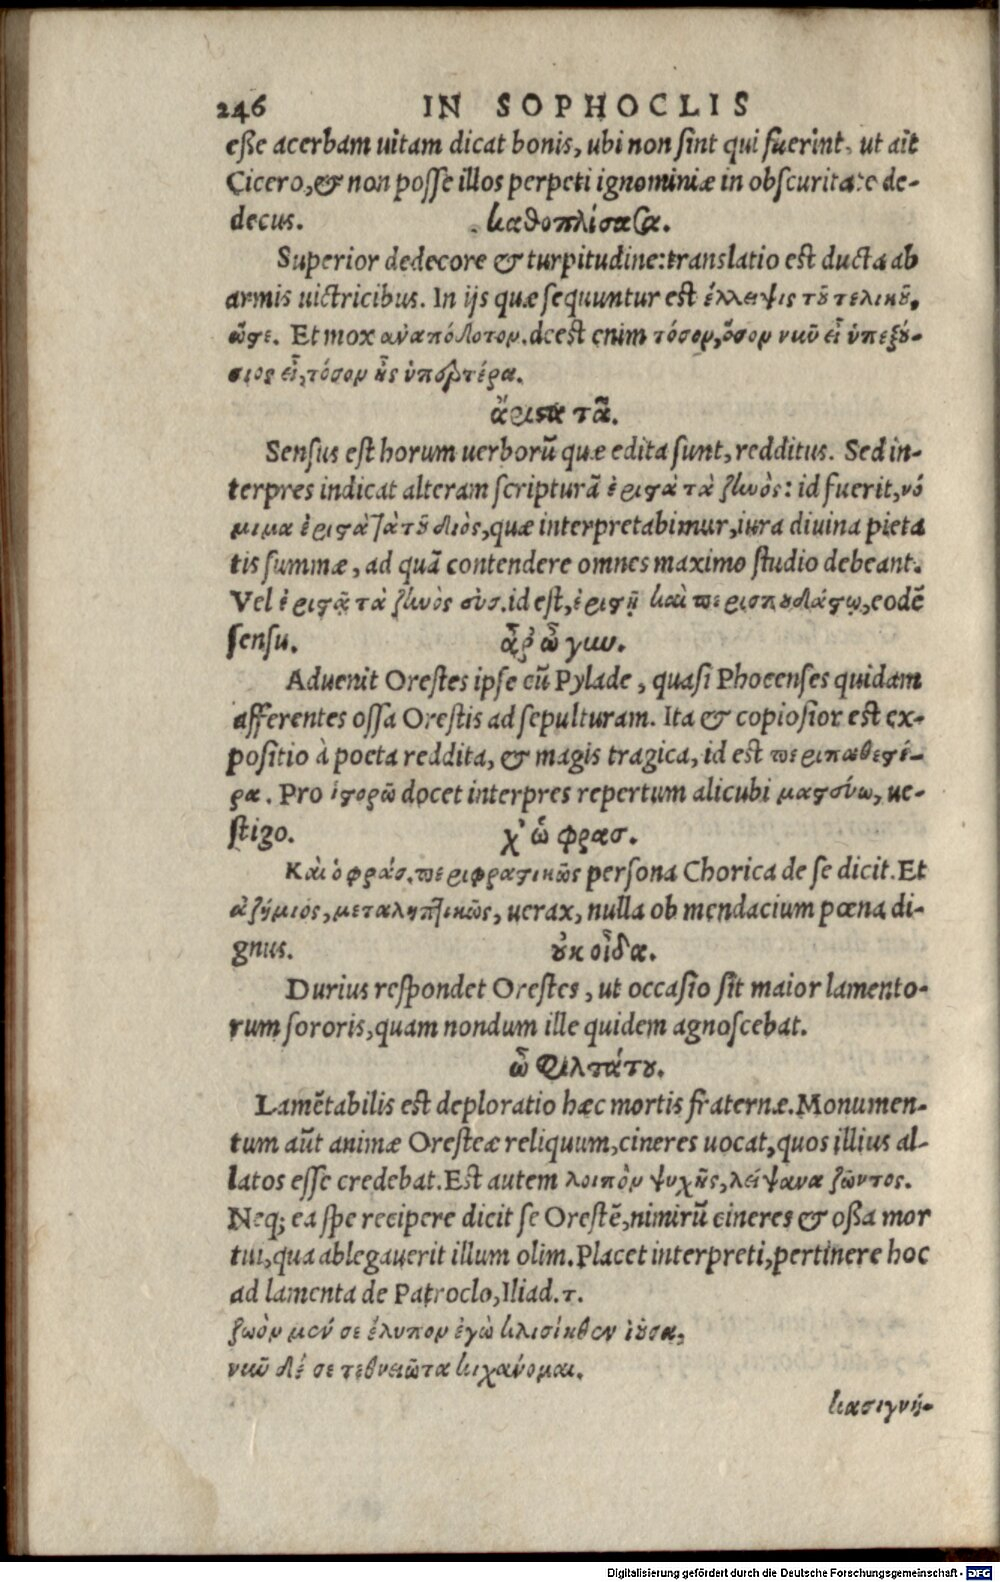 246 IN SOPHOCLIS
eſſe acerbam uitam dicat bonis, ubi non ſint qui fuerint, ut ait
Cicero, & non poſſe illos perpeti ignominiæ in obſcuritate de-
decus. καθοπλίσασα.
Superior dedecore & turpitudine: translatio est ducta ab
armis uictricibus. In ijs quæ ſequuntur est ἔλλειψις τȣ͂ τελικȣ͂,
ὥστε. Et mox ἀναπόδοτον. deest enim τόσον, ὅσον νιῦ εἶ ὑπεξȣ́-
σιος εἶ, τόσον ᾖς ὑπερτέρα.
ἄριστα τᾶ.
Sensus est horum uerborũ quæ edita ſunt, redditus. Sed in-
terpres indicat alteram ſcripturã ἐριστὰ τὰ ζlωὸς: id fuerit, νό
μιμα ἐριστὰ τὰ τȣ͂ διὸς, quæ interpretabimur, iura diuina pieta
tis ſummæ, ad quã contendere omnes maximo ſtudio debeant.
Vel ἐριστᾷ τὰ ζlωὸς σὺσ. id est, ἐριστῇ καὶ περισπȣδάστῳ, eodẽ
ſenſu. ἆρ᾽ ὦ γιω.
Aduenit Orestes ipſe cũ Pylade, quaſi Phocenſes quidam
afferentes oſſa Orestis ad ſepulturam. Ita & copioſior est ex-
poſitio à poeta reddita, & magis tragica, id est περιπαθεστέ-
ρα. Pro ἱστορῶ docet interpres repertum alicubi μαστεύω, ue-
ſtigo. χ᾽ ὡ φρασ.
Καὶ ὁ φράσ. περιφραστικῶς perſona Chorica de ſe dicit. Et
ἀζήμιός, μεταληπτικῶς, uerax, nulla ob mendacium pœna di-
gnus. ȣ̓κ οἶδα.
Durius reſpondet Orestes, ut occaſio ſit maior lamento-
rum ſororis, quam nondum ille quidem agnoſcebat.
ὦ φιλτάτȣ.
Lamẽtabilis est deploratio hæc mortis fraternæ. Monumen-
tum aũt animæ Oresteæ reliquum, cineres uocat, quos illius al-
latos eſſe credebat. Est autem λοιπὸν ψυχῆς, λείψανα ζῶντος.
Neq; ea ſpe recipere dicit ſe Orestẽ, nimirũ cineres & oſſa mor
tui, qua ablegauerit illum olim. Placet interpreti, pertinere hoc
ad lamenta de Patroclo, Iliad. τ.
ζωὸν μέν σε ἔλυπον ἐγὼ κλισίηθεν ἰȣ͂σα,
νιῦ δέ σε τεθνειῶτα κιχάνομαι.
κασιγνή-
Digitalisierung gefördert durch die Deutsche Forschungsgemeinschaft - DFG